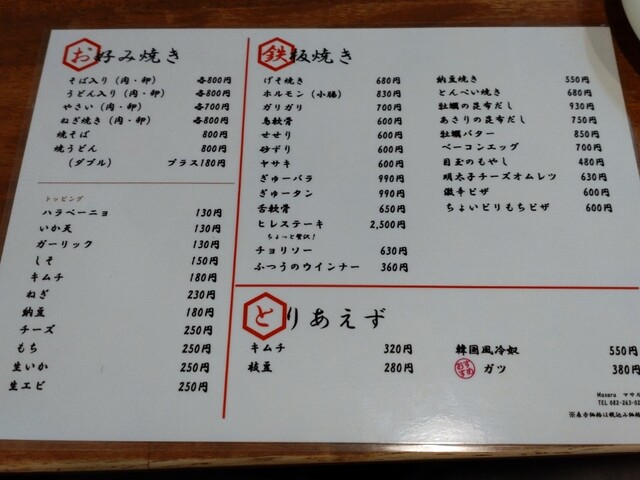 お好み焼き
そば入り（肉・卵） 各800円
うどん入り（肉・卵） 各800円
やさい（肉・卵） 各700円
ねぎ焼き（肉・卵） 各800円
焼そば 800円
焼うどん 800円
（ダブル） プラス180円
トッピング
ハラペーニョ 130円
いか天 130円
ガーリック 130円
しそ 150円
キムチ 180円
ねぎ 230円
納豆 180円
チーズ 250円
もち 250円
生いか 250円
生エビ 250円
鉄板焼き
げそ焼き 680円
ホルモン（小腸） 830円
ガリガリ 700円
鳥軟骨 600円
せせり 600円
砂ずり 600円
ヤサキ 600円
ぎゅーバラ 990円
ぎゅータン 990円
舌軟骨 650円
ヒレステーキ 2,500円
ちょっと贅沢！
チョリソー 630円
ふつうのウインナー 360円
納豆焼き 550円
とんぺい焼き 680円
牡蠣の昆布だし 930円
あさりの昆布だし 750円
牡蠣バター 850円
ベーコンエッグ 700円
目玉のもやし 480円
明太子チーズオムレツ 630円
激辛ピザ 600円
ちょいピリもちピザ 600円
とりあえず
キムチ 320円
枝豆 280円
韓国風冷奴 550円
おすすめ ガツ 380円
Masaru マサル
TEL 082-263-02
※表示価格は税込み価格